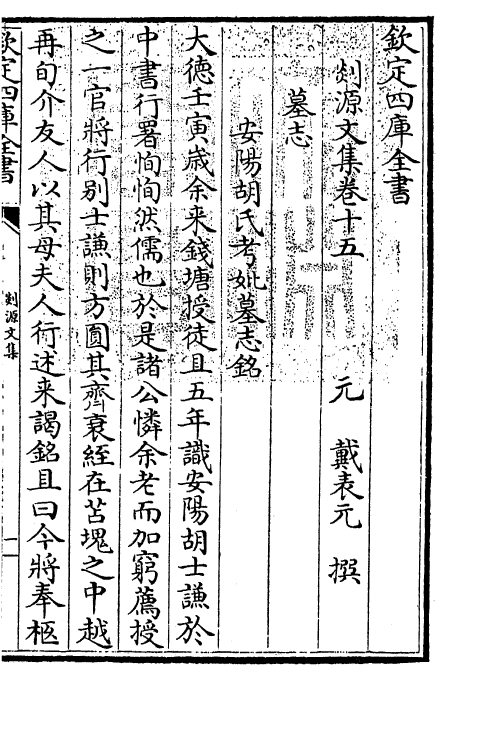 欽定四庫全書
剡源文集卷十五
元 戴表元 撰
墓志
安陽胡氏考妣墓志銘
大德壬寅歳余来錢塘授徒且五年識安陽胡士謙於
中書行署恂恂然儒也於是諸公憐余老而加窮薦授
之一官將行别士謙則方圓其齊衰絰在苫塊之中越
再旬介友人以其母夫人行述来謁銘且曰今將奉柩
欽定四庫全書
剡源文集
一